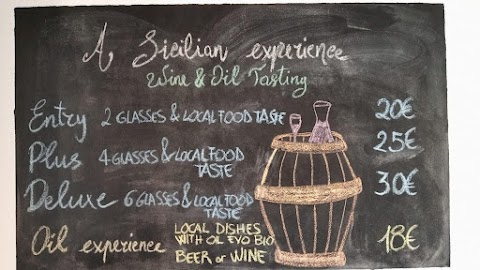 A Sicilian experience
Wine & Oil Tasting
Entry 2 GLASSES & LOCAL FOOD TASTE 20€
Plus 4 GLASSES & LOCAL FOOD TASTE 25€
Deluxe 6 GLASSES & LOCAL FOOD TASTE 30€
Oil experience LOCAL DISHES WITH OL EVO BIO BEER or WINE 18€